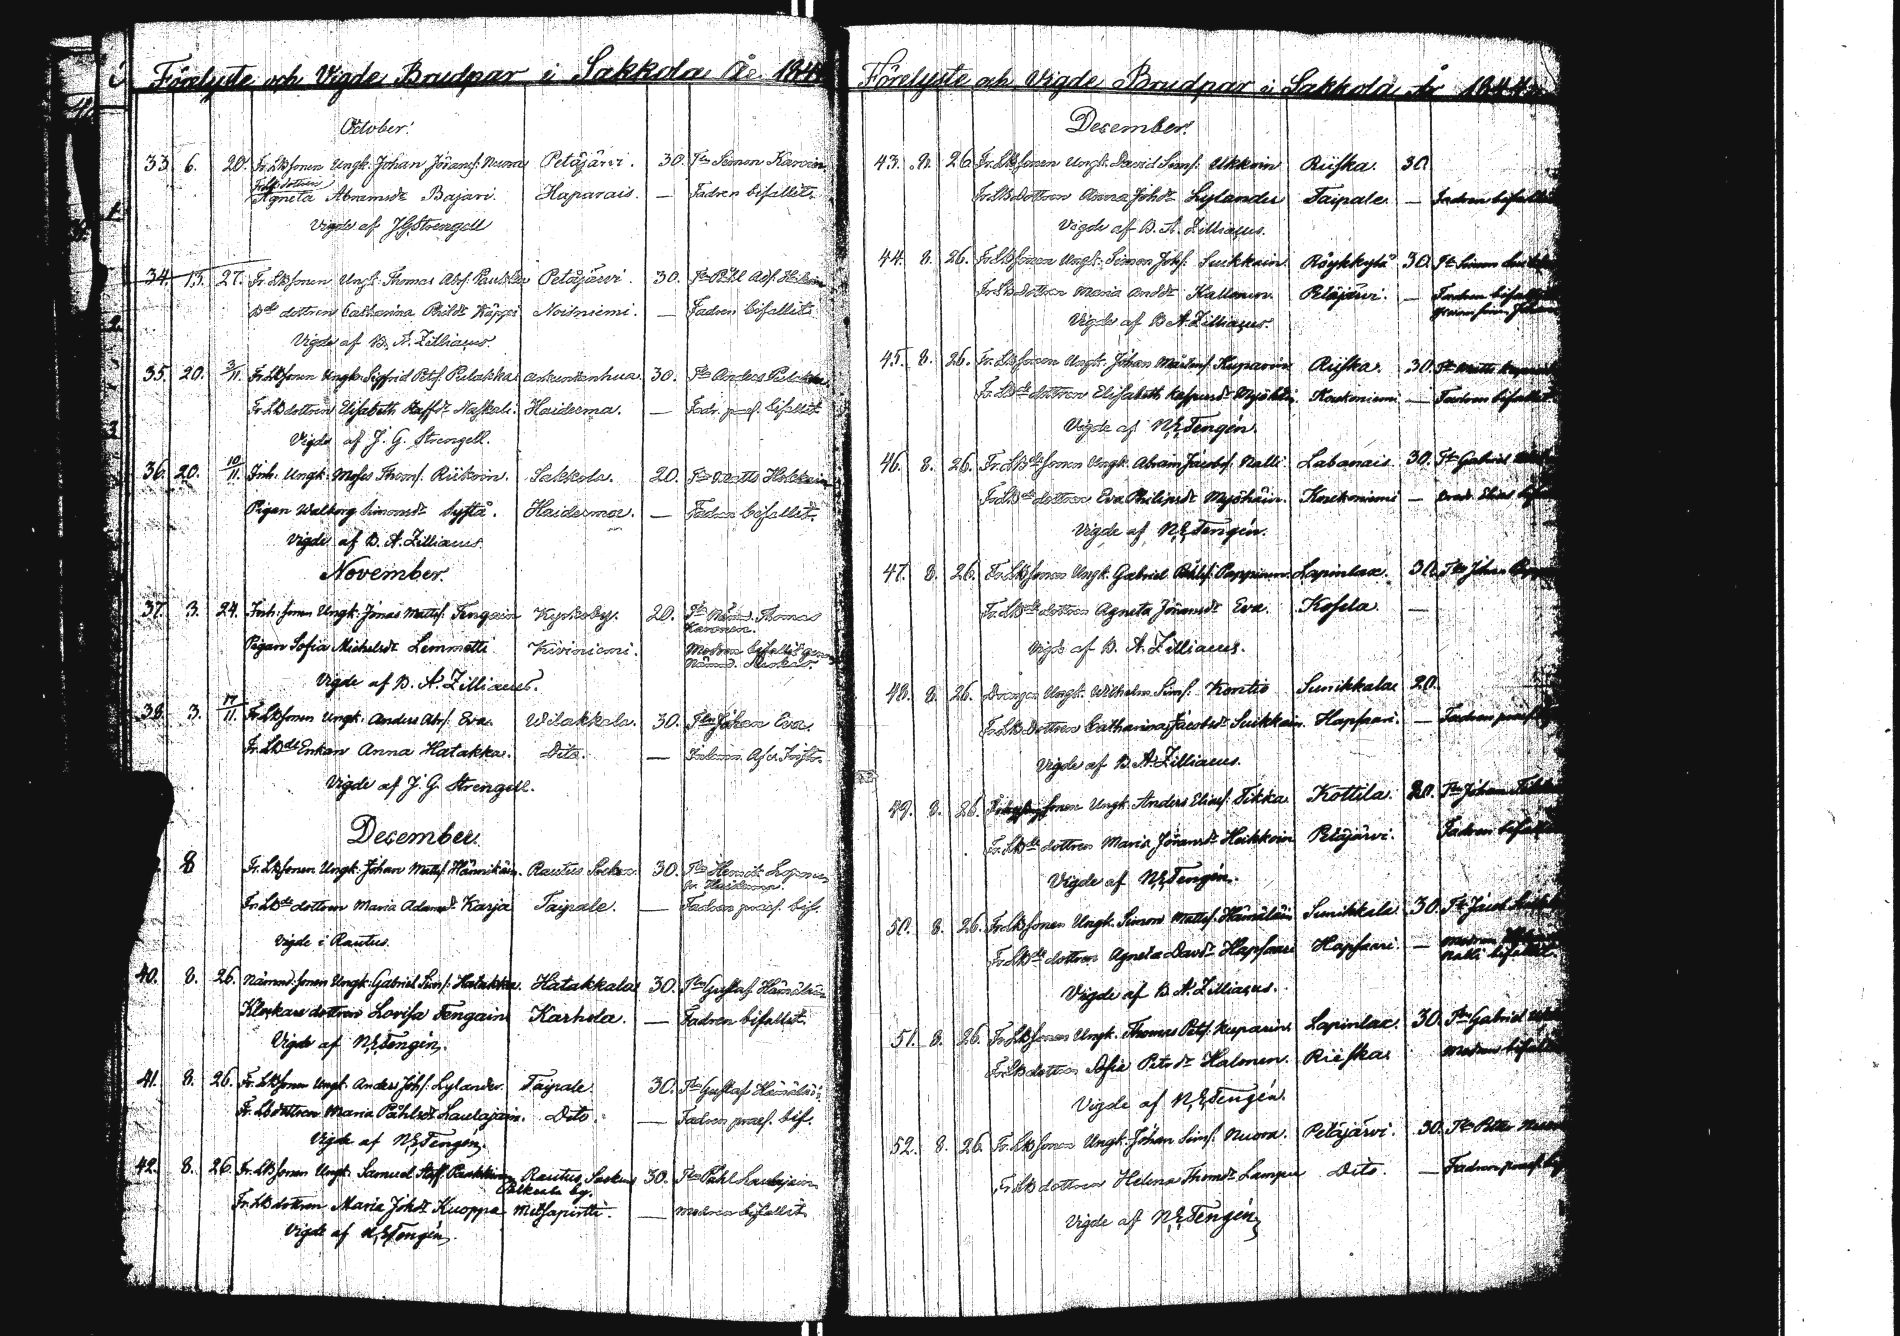 Förelyste och Vigde Brudpar i Sakkola År 1844
October.
33. 6. 20. Fr. LBsonen Ungk. Johan Jöransf. Nuora Petäjärvi. 30. Simon Karvin
Fr. LBdottren Agneta Abramsdr Bajari. Haparais. — Fadren bifallit.
Vigde af J G Strengell
34. 13. 27. Fr. LBsonen Ungk. Thomas Petäjärvi. 30.
dottren Catharina Käppi Noisniemi. — Fadren bifallit.
Vigde af B. A. Zilliacus.
35. 20. 3/11. Fr. LBsonen Ungk. Sigfrid Petf. Pulakka 30. Anders Pulakka
Fr. LBdottren Elisabeth Staffdr Naskali. Haiderma. — Fadr. præf. bifallit
Vigde af J. G. Strengell.
36. 20. 10/11. Inh. Ungk. Moses Thomf. Riikoin. Sakkola. 20. Matts
Pigan Walborg Simonsdr Syltä. Haiderma. — Fadren bifallit.
Vigde af B. A. Zilliacus
November.
37. 3. 24. Inh. sonen Ungk. Jonas Mattsf. Tengain Kyrkoby. 20. Thomas Karonen.
Pigan Sofia Michelsdr Lemmetti Kiviniemi. Modren bifallit genom Nämnd.
Vigde af B. A. Zilliacus.
38. 3. 17/11. Fr. LBsonen Ungk. Anders Abrf. Eva. Wilakkala. 30. Johan Eva.
Fr. LBds Enkan Anna Hatakka. Dito. —
Vigde af J. G. Strengell.
December.
8 Fr. LBsonen Ungk. Johan Mattsf. Hännikäin. Rautus Sockn 30. Henrik
Fr. LBds dottren Maria Adamsdr Karja Taipale. — Fadren præf. bif.
Vigde i Rautus.
40. 8. 26. Nämnd. sonen Ungk. Gabriel Simf. Hatakka. Hatakkala 30. Gustaf Hämäläin
Klockare dottren Lovisa Tengain Karhola. — Fadren bifallit.
Vigde af N. E. Tengén.
41. 8. 26. Fr. LBsonen Ungk. Anders Johf. Lylander. Taipale. 30. Gustaf Hämäläin
Fr. LBdottren Maria Påhlsdr Laulajain. Dito. — Fadren præf. bif.
Vigde af N. E. Tengén.
42. 8. 26. Fr. LBsonen Ungk. Samuel Staff. Paukkunen Rautus Sockn Palkeala by. 30. Påhl Laulajain
Fr. LBdottren Maria Johdr Kuoppa Metsäpirtti. — Modren bifallit
Vigde af N. E. Tengén.
Förelyste och Vigde Brudpar i Sakkola År 1844
December.
43. 8. 26. Fr. LBsonen Ungk. David Simf. Ukkoin Riiska. 30.
Fr. LBdottren Anna Johdr Lylander Taipale. — Fadren bifallit
Vigde af B. A. Zilliacus.
44. 8. 26. Fr. LBsonen Ungk. Simon Johf. Suikkain Röykkylä 30. Simon
Fr. LBdottren Maria Anddr Kallonen. Petäjärvi. — Fadren bifallit
Vigde af B A. Zilliacus.
45. 8. 26. Fr. LBsonen Ungk. Johan Mårtensf. Kuparin Riiska. 30. Matts
Fr. LBds dottren Elisabeth Myöhäin Koukoniemi — Fadren bifallit
Vigde af N. E. Tengén.
46. 8. 26. Fr. LBds sonen Ungk. Abram Jacobsf. Nalli Labanais. 30. Gabriel
Fr. LBds dottren Eva Philipsdr Myöhäin. Koukoniemi — Elias
Vigde af N. E. Tengén.
47. 8. 26. Fr. LBsonen Ungk. Gabriel Påhlsf. Pappinen. Lapinlax. 30. Johan
Fr. LBds dottren Agneta Jöransdr Eva. Kosela —
Vigde af B. A. Zilliacus.
48. 8. 26. Drengen Ungk. Wilhelm Simf. Kontio Sunikkala 20.
Fr. LB dottren Catharina Jacobsdr Suikkain. Hapsaari. — Fadren præf.
Vigde af B. A. Zilliacus.
49. 8. 26. sonen Ungk. Anders Eliasf. Tikka Kottila 20. Johan Tikka
Fr. LBds dottren Maria Jöransdr Heikkoin Petäjärvi. Fadren bifallit
Vigde af N. E. Tengén.
50. 8. 26. Fr. LBsonen Ungk. Simon Mattsf. Hämäläin Sunikkala 30. Jacob
Fr. LBds dottren Agneta Davdr Hapsaari Hapsaari. — Modren Nalli bifallit.
Vigde af B A. Zilliacus.
51. 8. 26. Fr. LBsonen Ungk. Thomas Petf. Kuparin Lapinlax. 30. Gabriel
Fr. LBdottren Sofia Petsdr Halonen. Riiska Modren bifallit
Vigde af N. E. Tengén.
52. 8. 26. Fr. LBsonen Ungk. Johan Simf. Nuora. Petäjärvi. 30. Petter Nuora
Fr. LB dottren Helena Thomdr Lampu Dito. — Fadren præf. bif
Vigde af N. E. Tengén.